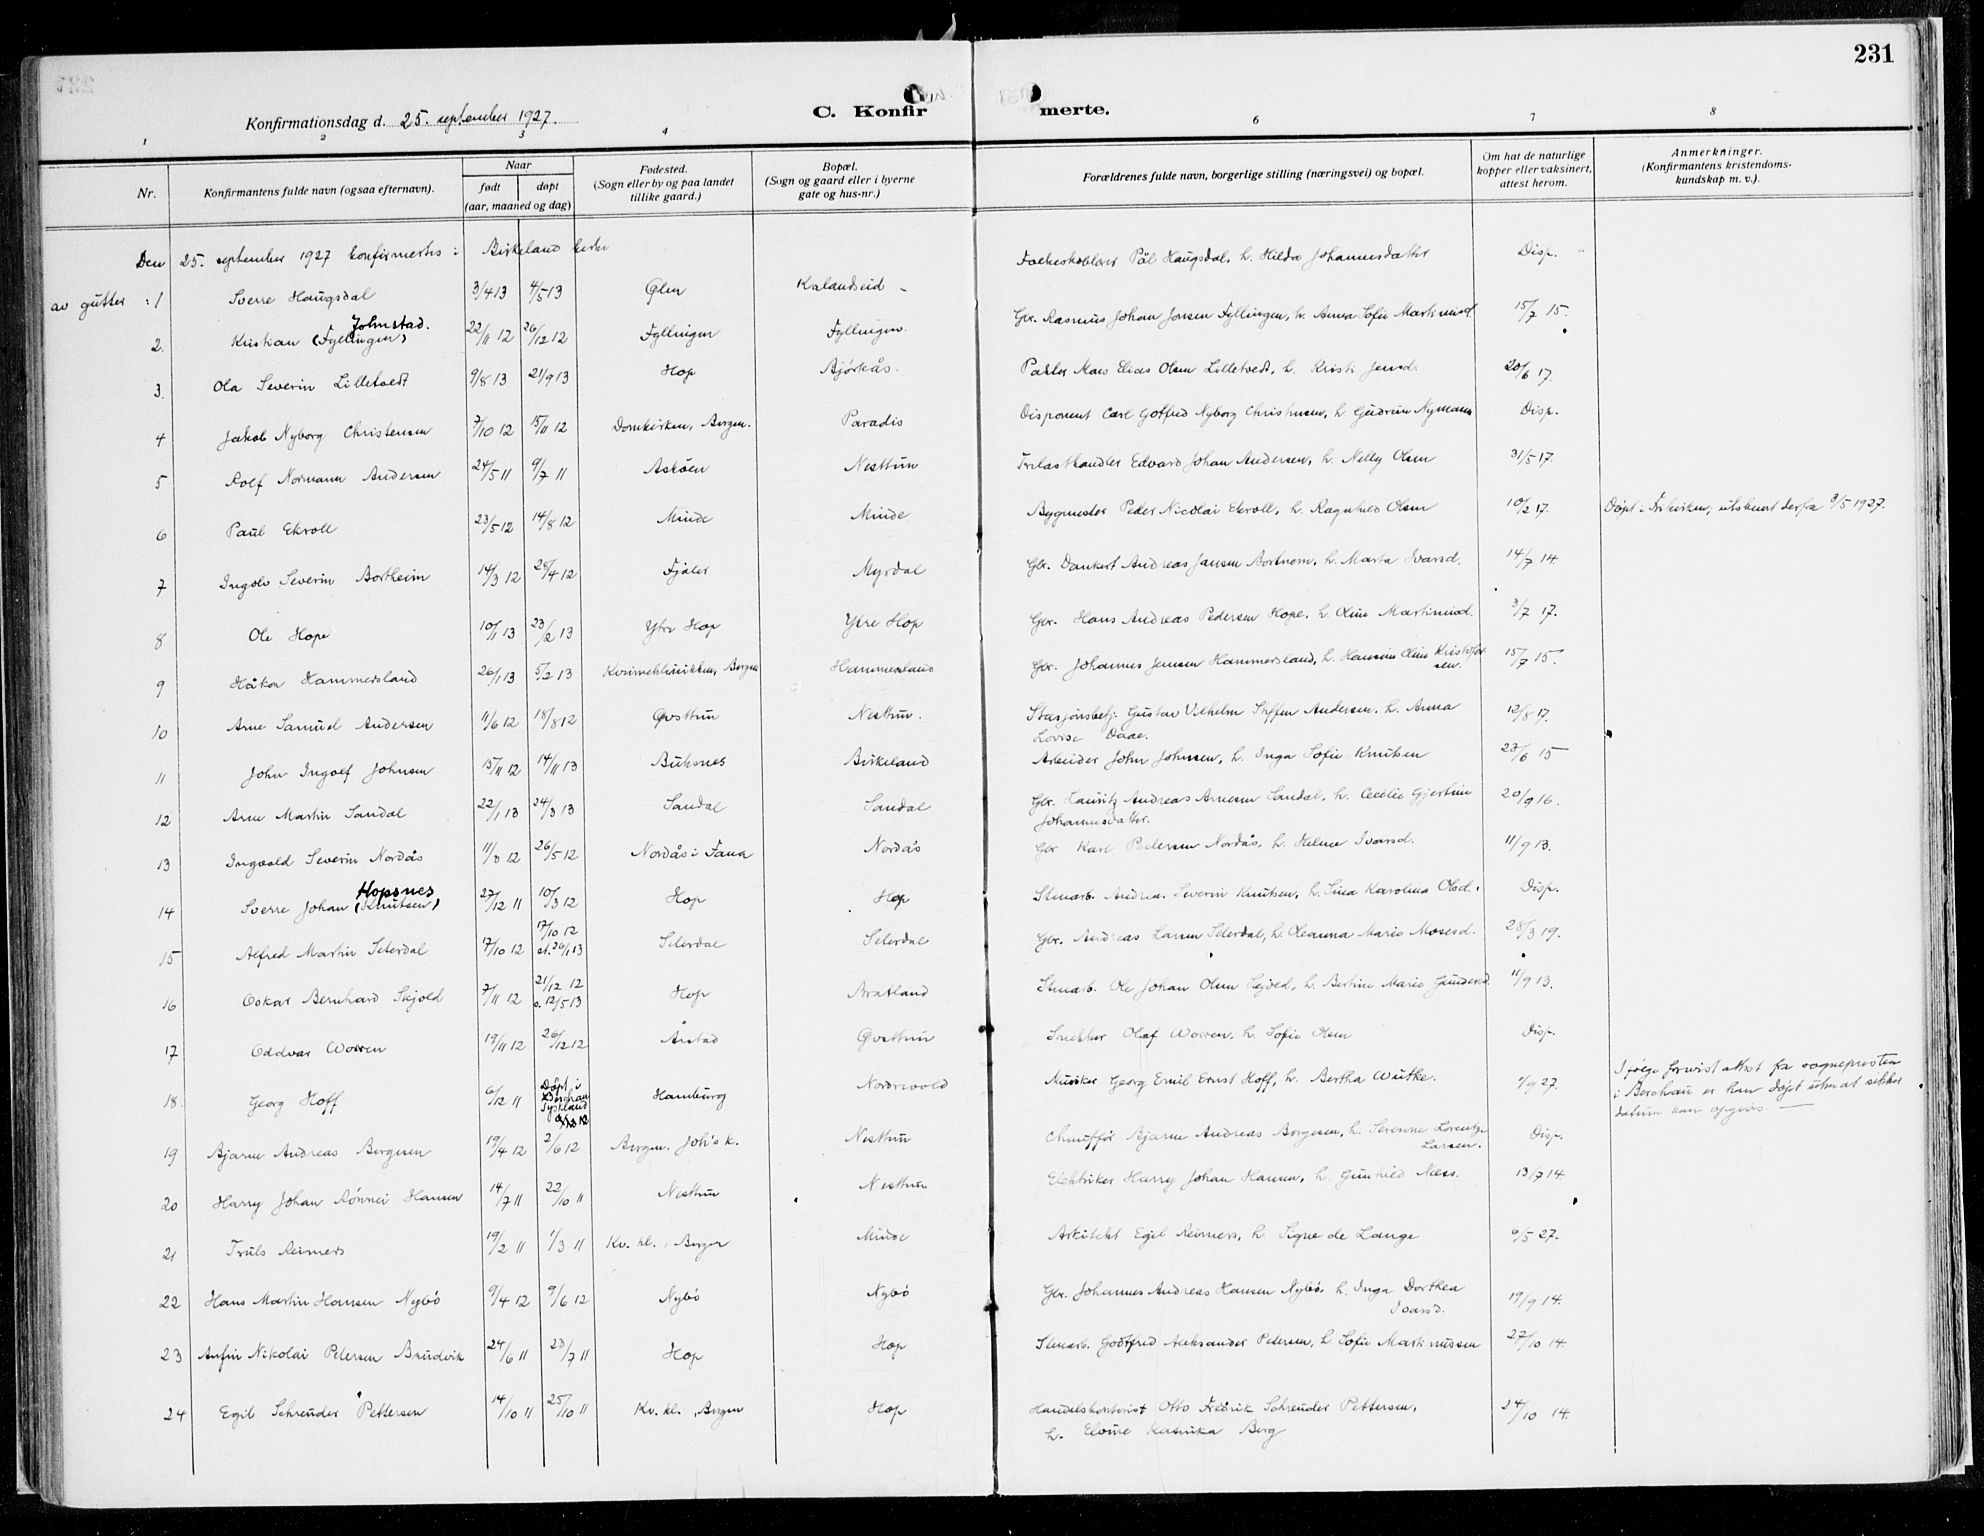 231
Konfirmationsdag d. 25. september 1927.
C. Konfirmerte.
1 2 3 4 6 7 8
Nr.
Konfirmantens fulde navn (ogsaa efternavn).
Naar
født døpt
(aar, maaned og dag)
Fødested.
(Sogn eller by og paa landet
tillike gaard.)
Bopæl.
(Sogn og gaard eller i byerne
gate og hus-nr.)
Forældrenes fulde navn, borgerlige stilling (næringsvei) og bopæl.
Om hat de naturlige
kopper eller vaksinert,
attest herom.
Anmerkninger.
(Konfirmantens kristendoms-
kundskap m. v.).
Den 25. september 1927 konfirmertes i Birkeland kirke
av gutter: 1 Sverre Haugsdal 3/4 13 4/5 13 Ølen Kalandseid Folkeskolelærer Pål Haugsdal, h. Hilda Johannesdatter Disp.
2. Kristian (Fyllingen) Johnstad. 22/11 12 26/12 12 Fyllingen Fyllingen. Gbr. Rasmus Johan Jonsen Fyllingen, h. Anna Sofie Martinusd. 15/7 15.
3. Ola Severin Lilletvedt 9/8 13 21/9 13 Hop Bjørkås. Mons Elias Olsen Lilletvedt, h. Kristi Jensd. 20/6 17.
4 Jakob Nyborg Christensen 7/10 12 15/11 12 Domkirken, Bergen. Paradis Disponent Carl Gotfred Nyborg Christensen, h. Gudrun Nymann Disp.
5 Rolf Normann Andersen 24/5 11 9/7 11 Askøen Nesttun Trelasthandler Edvard Johan Andersen, h. Nelly Olsen 31/5 17.
6 Paul Ekroll 23/5 12 14/8 12 Minde Minde Bygmester Peder Nicolai Ekroll, h. Ragnhild Olsen 10/2 17. Døpt i Frikirken, utskrevet derfra 9/5 1927.
7 Ingolv Severin Bortheim 14/3 12 28/4 12 Fjaler Myrdal Gbr. Dankert Andreas Jansen Bortnem, h. Marta Ivarsd. 14/7 14.
8 Ole Hope 10/1 13 23/2 13 Ytre Hop Ytre Hop Gbr. Hans Andreas Pedersen Hope, h. Oline Martinusd. 3/7 17.
9 Håkon Hammersland 26/1 13 5/2 13 Kvinneklinikken, Bergen Hammersland Gbr. Johannes Jensen Hammersland, h. Hansine Oline Kristoffer
sen. 15/7 15.
10 Arne Samuel Andersen 11/6 12 18/8 12 Øvsttun Nesttun. Stasjonsbetj. Gustav Vilhelm Steffen Andersen, h. Anna
Lovise Daae. 12/8 17.
11 John Ingolf Johnsen 15/11 12 14/11 13 Buksnes Birkeland Arbeider John Johnsen, h. Inga Sofie Knutsen 23/6 15
12 Arne Martin Sandal 22/1 13 24/3 13 Sandal Sandal Gbr. Lauritz Andreas Arnesen Sandal, h. Cecilie Gjertine
Johannesdatter. 20/9 16.
13 Ingvald Severin Nordås 11/3 12 26/5 12 Nordås i Fana Nordås Gbr Karl Pedersen Nordås, h. Helene Ivarsd. 11/9 13.
14 Sverre Johan (Knutsen) Hopsnes 27/12 11 10/3 12 Hop Hop Stenarb. Andreas Severin Knutsen, h. Sina Karolina Olsd. Disp.
15 Alfred Martin Seterdal 17/10 12 17/10 12
st. 26/1 13 Seterdal Seterdal Gbr. Andreas Larsen Seterdal, h. Oleanna Marie Mosesd. 28/3 19.
16 Oskar Bernhard Skjold 7/11 12 21/12 12
s. 12/5 13 Hop Bratland Stenarb. Ole Johan Olsen Skjold, h. Bertine Marie Gundersd. 11/9 13.
17 Oddvar Worren 19/11 12 26/12 12 Årstad Øvsttun Snekker Olaf Worren, h. Sofie Olsen Disp.
18. Georg Hoff 6/12 11 Døpt i
Berchau
Tyskland Hamburg Nordrevold Musiker Georg Emil Ernst Hoff, h. Bertha Wutke. 1/9 27. I følge forevist attest fra sognepresten
i Berchau er han døpt uten at sikker
datum kan opgives.
19 Bjarne Andreas Børgesen 19/4 12 2/6 12 Bergen. Joh's k. Nesttun Chauffør Bjarne Andreas Børgesen, h. Serenne Lorentze
Larsen. Disp.
20 Harry Johan Rönnei Hansen 14/7 11 22/10 11 Nesttun Nesttun Elektriker Harry Johan Hansen, h. Gunhild Næss. 13/7 14.
21 Truls Reimers 19/2 11 1/3 11 Kv. kl., Bergen Minde Arkitekt Egil Reimers, h. Signe de Lange 6/5 27.
22 Hans Martin Hansen Nybö 9/4 12 9/6 12 Nybö Nybö Gbr. Johannes Andreas Hansen Nybö, h. Inga Dorthea
Ivarsd. 19/9 14.
23 Anfin Nikolai Petersen Brudvik 24/6 11 23/7 11 Hop Hop Stenarb. Godtfred Aleksander Petersen, h. Sofie Martinussen 27/10 14.
24 Egil Schreuder Pettersen 14/10 11 25/10 11 Kv. kl., Bergen Hop Handelskontorist Otto Fredrik Schreuder Pettersen,
h. Elvine Katinka Berg 24/10 14.